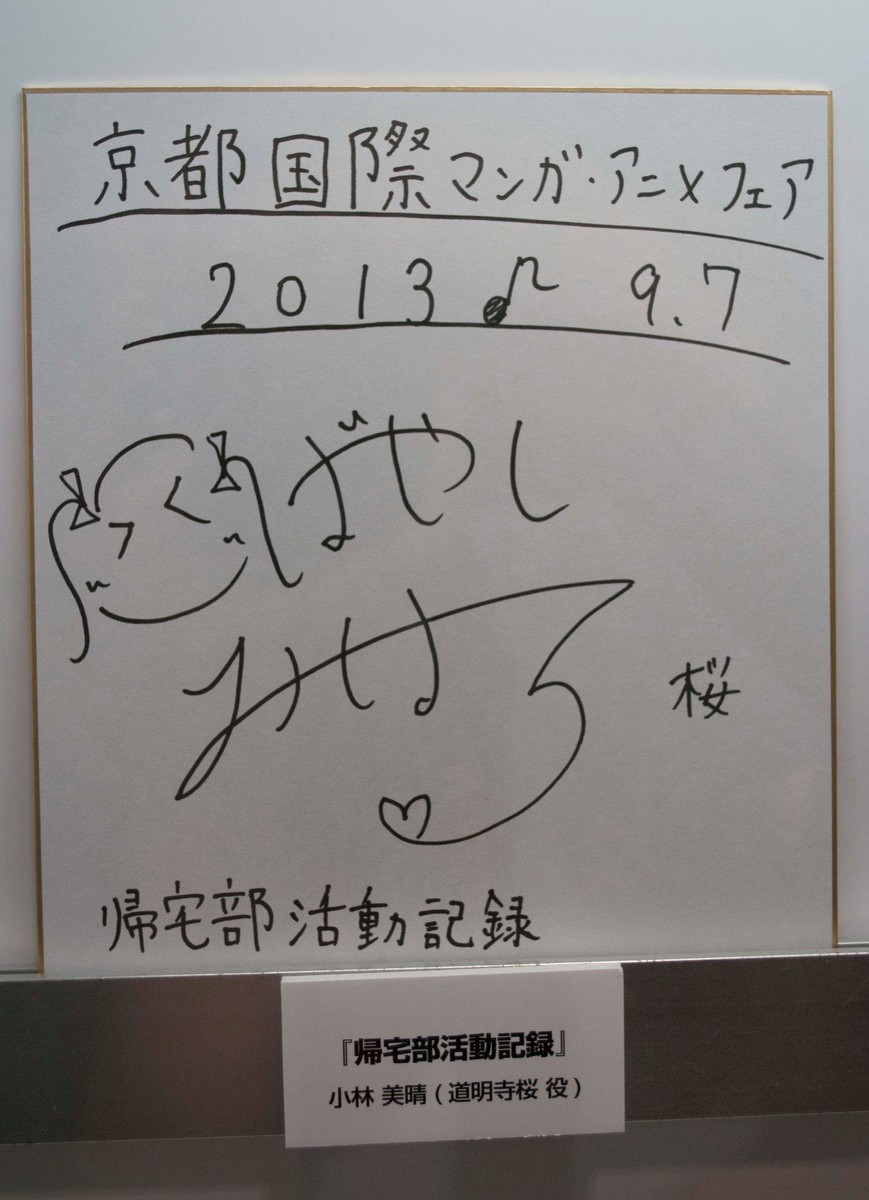 京都国際マンガ・アニメフェア
2013♪ 9.7
こばやし
みはる
桜
帰宅部活動記録
『帰宅部活動記録』
小林 美晴 ( 道明寺桜 役 )